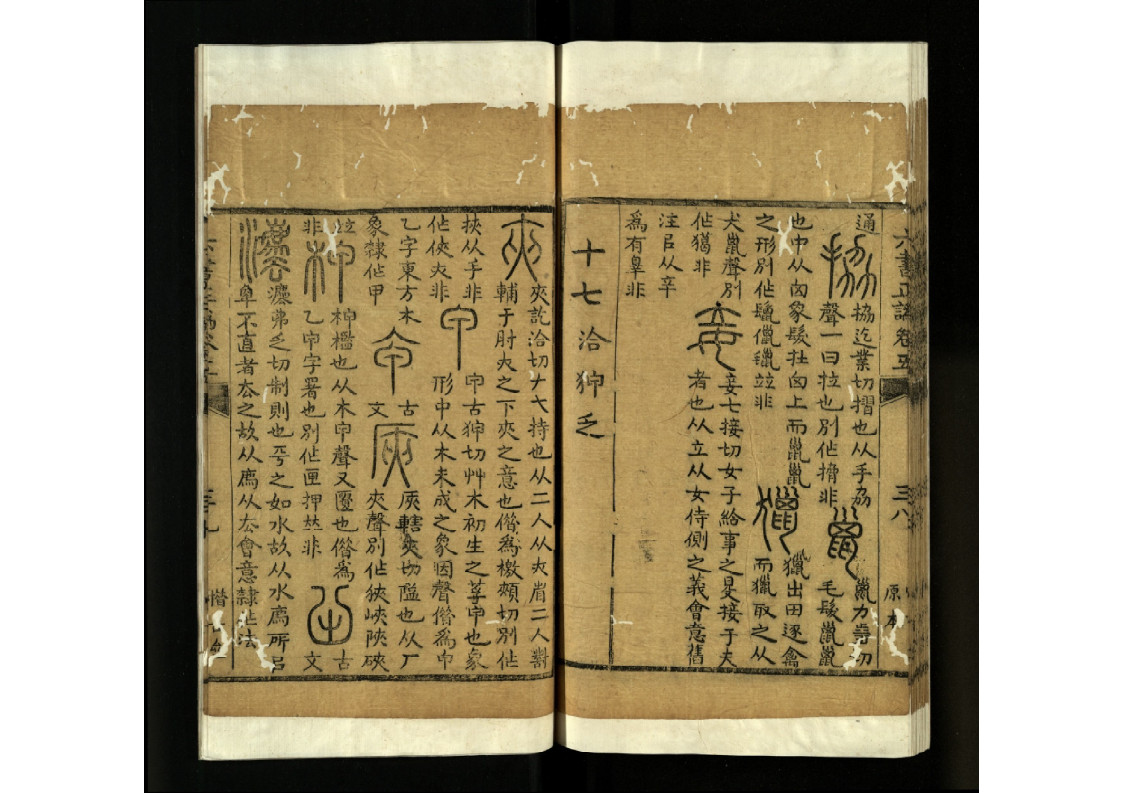 六書正譌卷五 三八 原本
通 拹 拹迄業切摺也从手劦
聲一曰拉也別作㩉非 巤 巤力尋切
毛髮巤巤
也中从囟象髮在囟上而巤巤
之形別作鬣儠竝非 獵 獵出田逐禽
而獵取之从
犬巤聲別
作獦非 妾 妾七接切女子給事之得接于夫
者也从立从女侍側之義會意舊
注㠯从辛
爲有辠非
十七洽狎乏
夾 夾訖洽切𠂇大持也从二人从大肩二人對
輔于肘大之下夾之意也借爲檄頰切別作
挾从手非
作俠夾非 甲 甲古狎切艸木初生之莩甲也象
形中从木未成之象因聲借爲甲
乙字東方木
象隸作甲 古
文 㕍 㕍轄夾切隘也从厂
夾聲別作狹峽陜硤
竝
非 柙 柙檻也从木甲聲又匱也借爲
乙甲字署也別作匣押竝非 古
文
灋 灋弗乏切制則也平之如水故从水廌所㠯
辠不直者去之故从廌从去會意隸作法